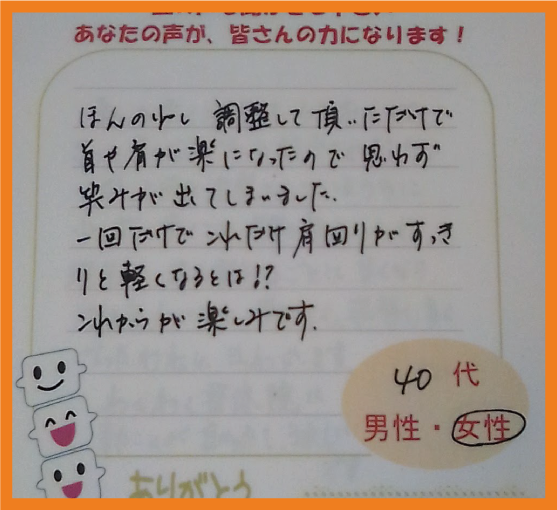 あなたの声が、皆さんの力になります!
ほんの少し 調整して頂いただけで
首や肩が楽になったので 思わず
笑みが出てしまいました。
一回だけで これだけ 肩回りがすっき
りと軽くなるとは!?
これからが楽しみです。
40代
男性・女性
ありがとう